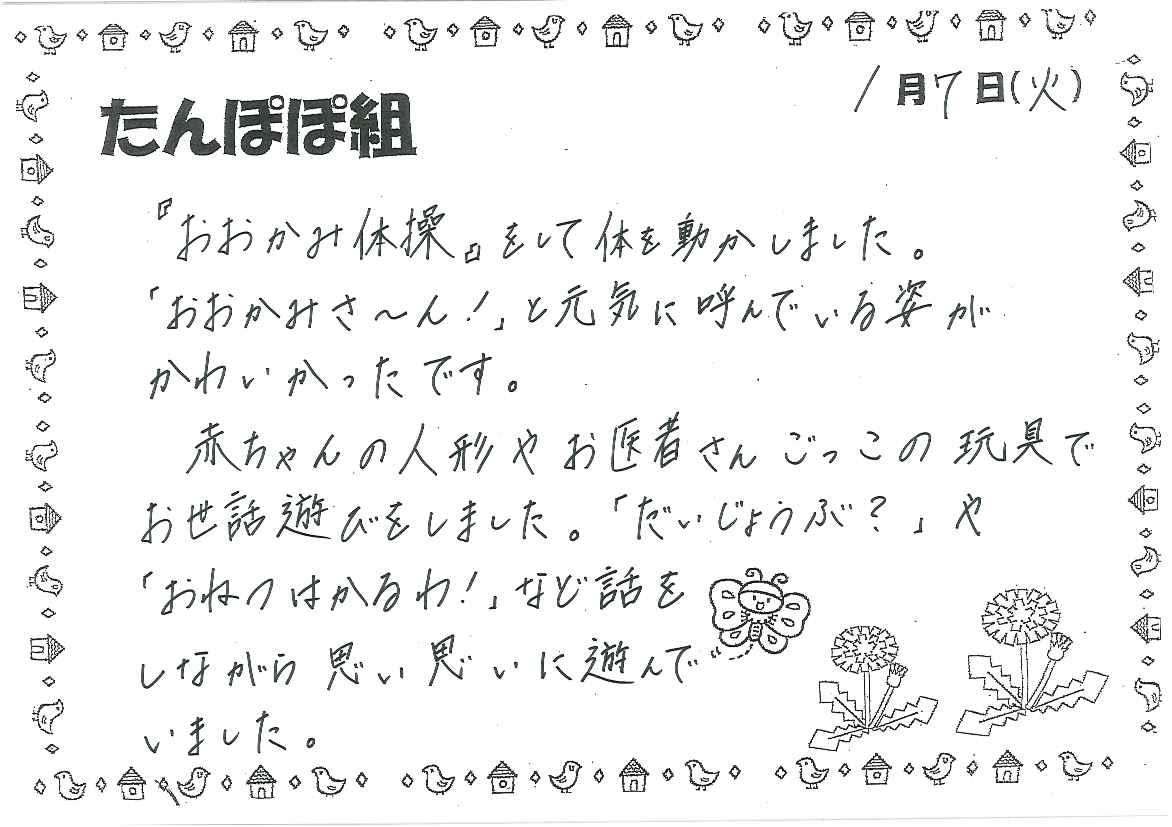 1月7日(火)
たんぽぽ組
『おおかみ体操』をして体を動かしました。
「おおかみさ～ん!」と元気に呼んでいる姿が
かわいかったです。
赤ちゃんの人形やお医者さんごっこの玩具で
お世話遊びをしました。「だいじょうぶ?」や
「おねつはかるわ!」など話を
しながら思い思いに遊んで
いました。